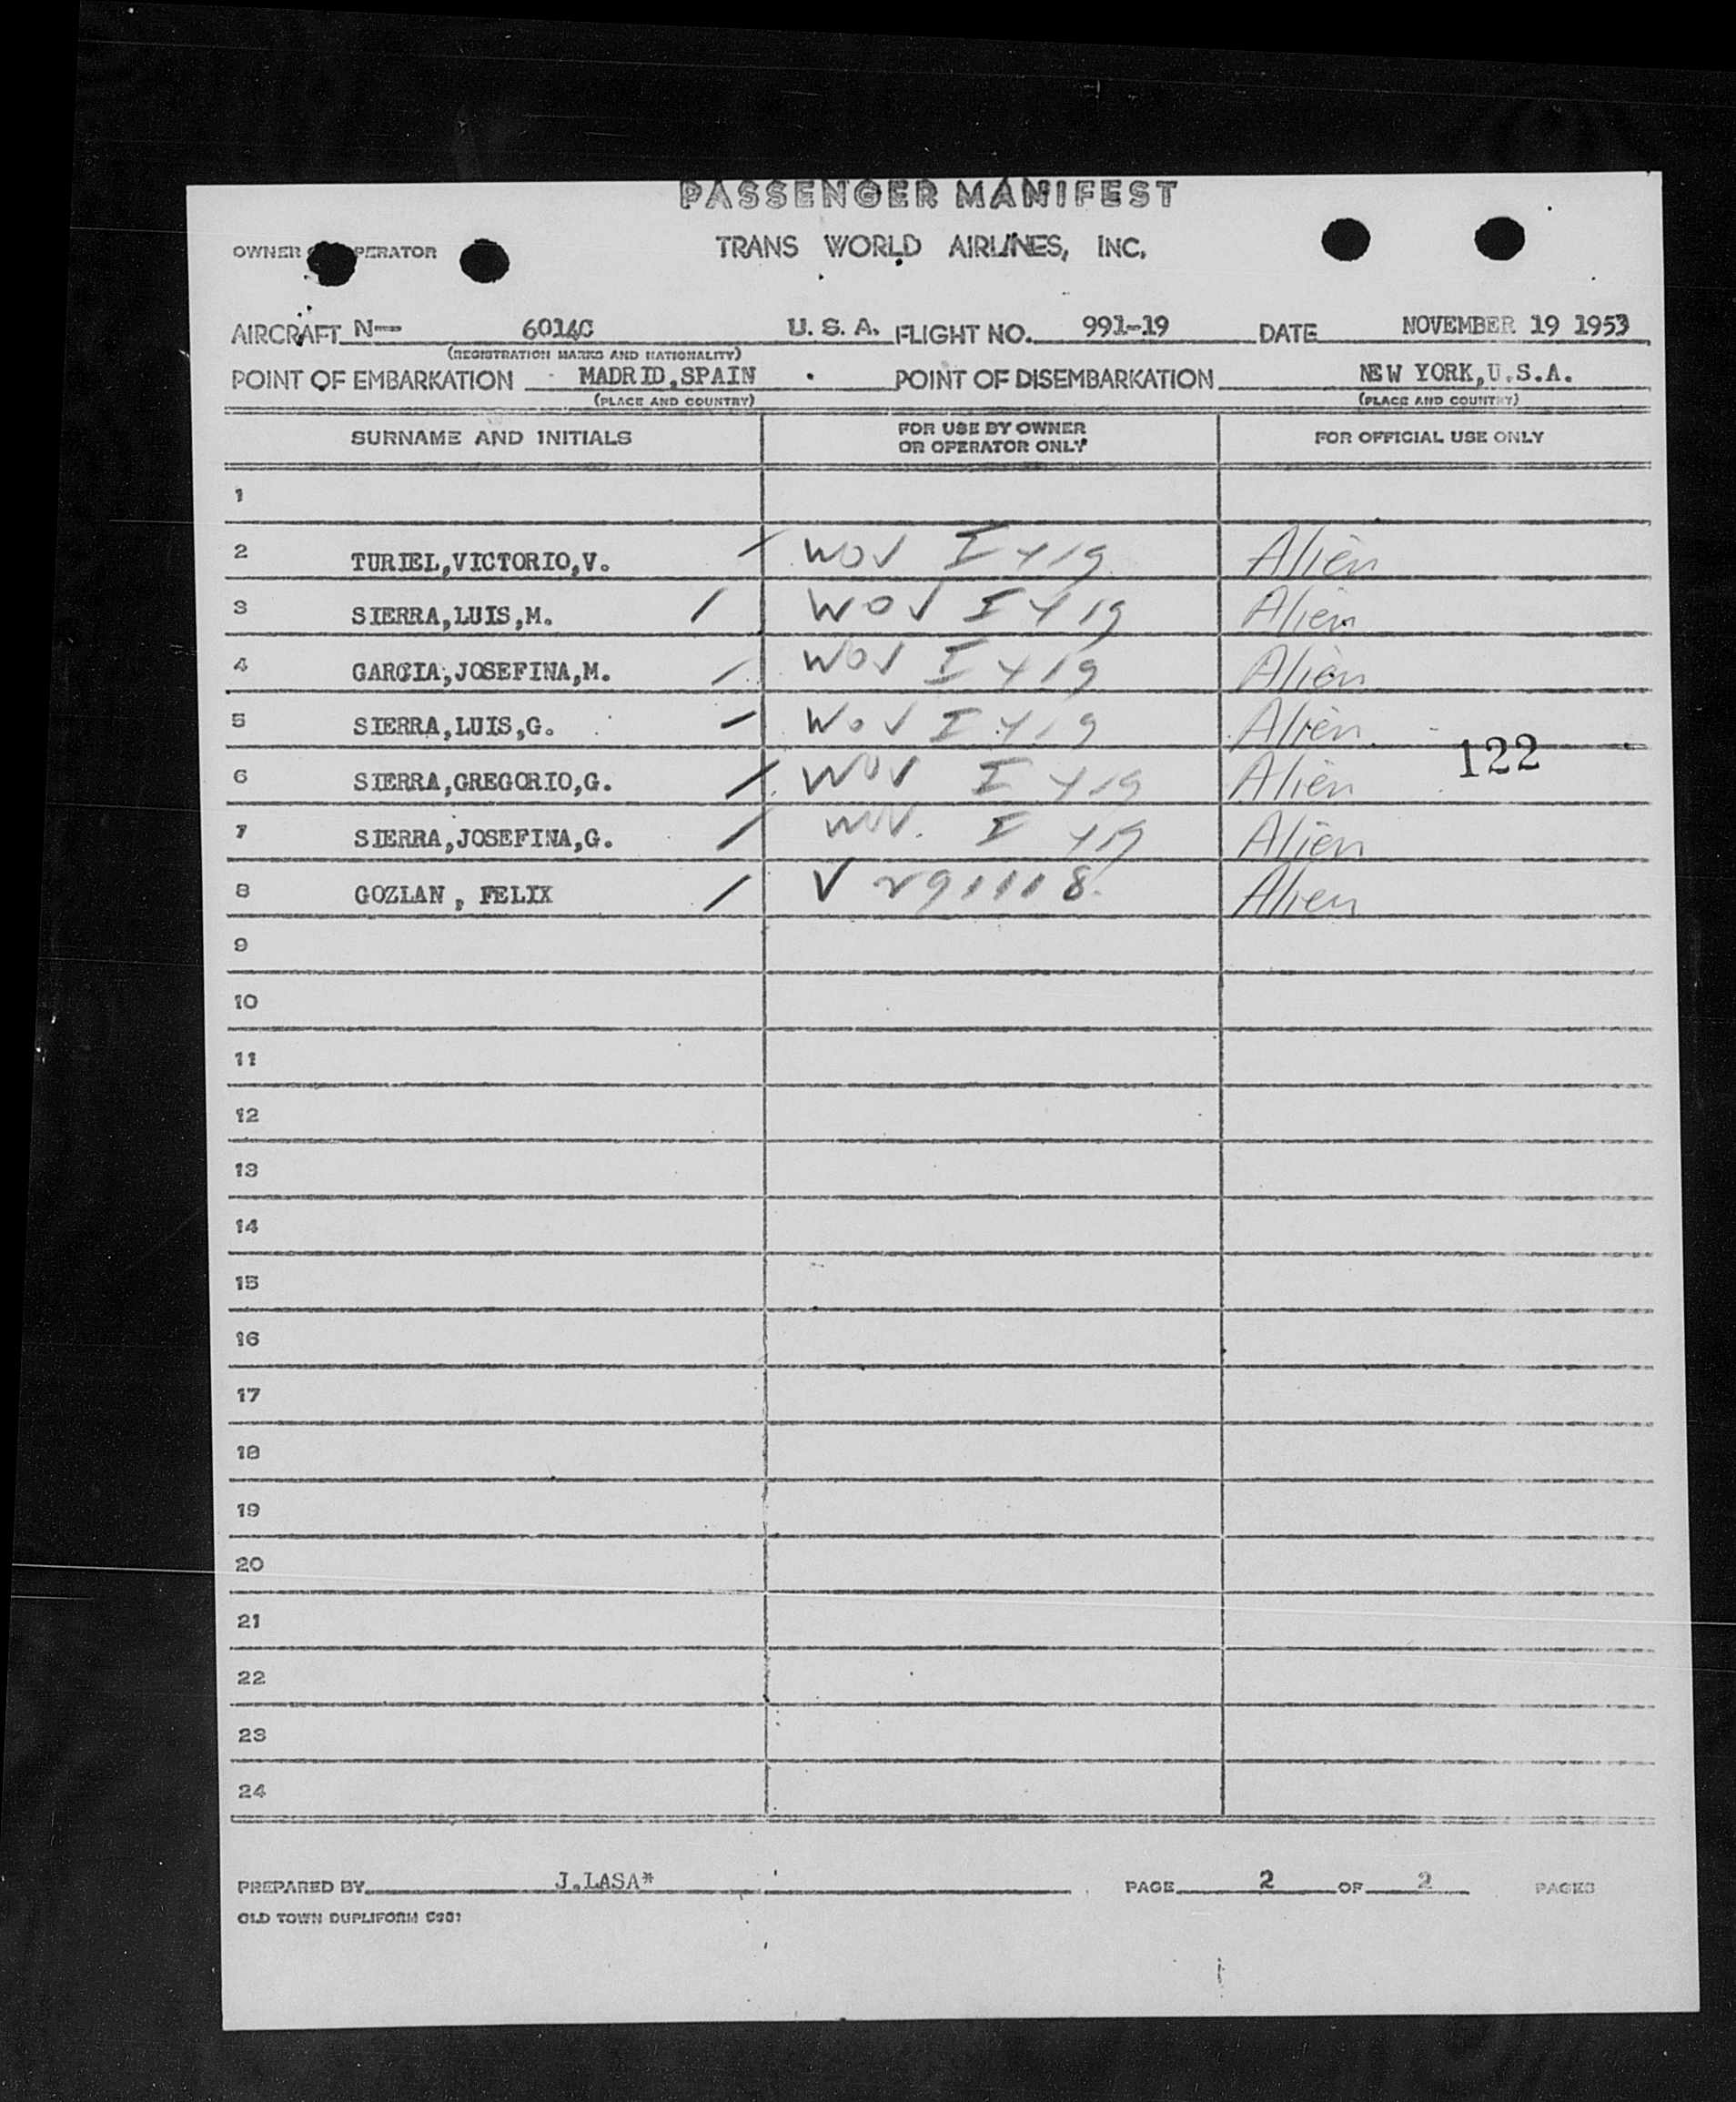 PASSENGER MANIFEST
OWNER OPERATOR TRANS WORLD AIRLINES, INC.
AIRCRAFT N-- 6014C U. S. A. FLIGHT NO. 991-19 DATE NOVEMBER 19 1953
(REGISTRATION MARKS AND NATIONALITY)
POINT OF EMBARKATION MADRID,SPAIN POINT OF DISEMBARKATION NEW YORK,U.S.A.
(PLACE AND COUNTRY) (PLACE AND COUNTRY)
SURNAME AND INITIALS FOR USE BY OWNER OR OPERATOR ONLY FOR OFFICIAL USE ONLY
1
2 TURIEL,VICTORIO,V. / WOV I 419 Alien
3 SIERRA,LUIS,M. / WOV I 419 Alien
4 GARCIA,JOSEFINA,M. / WOV I 419 Alien
5 SIERRA,LUIS,G. / WOV I 419 Alien
122
6 SIERRA,GREGORIO,G. / WOV I 419 Alien
7 SIERRA,JOSEFINA,G. / WOV I 419 Alien
8 GOZLAN, FELIX / V 291118 Alien
9
10
11
12
13
14
15
16
17
18
19
20
21
22
23
24
PREPARED BY J.LASA* PAGE 2 OF 2 PAGES
OLD TOWN DUPLIFORM